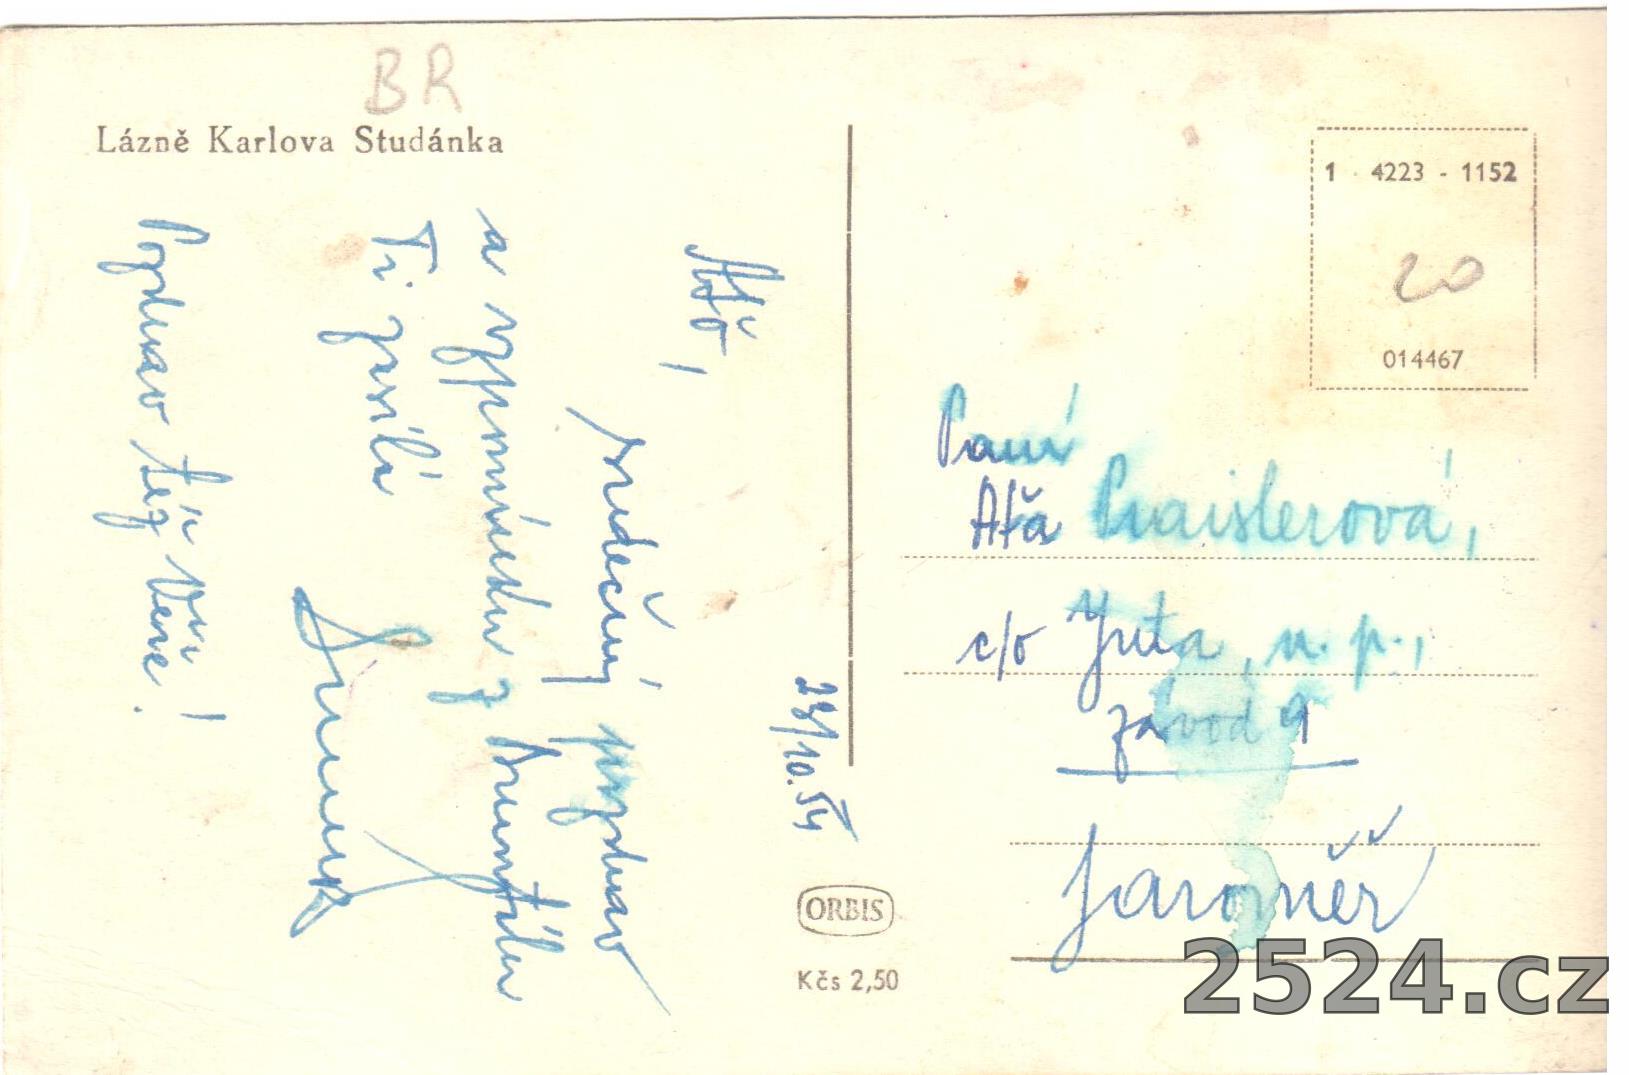 BR
Lázně Karlova Studánka
23/10.54
Aťo,
srdečný pozdrav
a vzpomínku z Bruntálu
Ti posílá
Pozdrav též Věře!
1 - 4223 - 1152
20
014467
Paní
Aťa Praislerová,
c/o Juta, n. p.,
závod 9
Jaroměř
ORBIS
Kčs 2,50
2524.cz